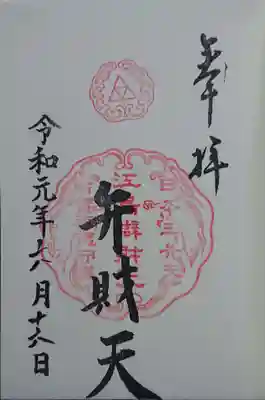 奉拝
江島辯財天
弁財天
令和元年六月十六日